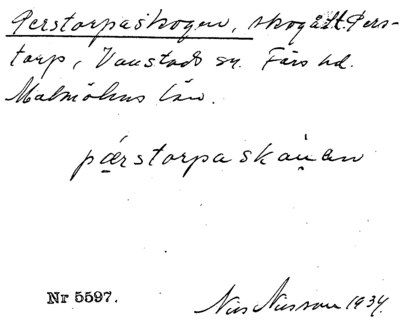 Perstorpaskogen, skog å tt. Pers-
torp, Vanstads sn. Färs hd.
Malmöhus län.
pærstorpaskäuan
Nr 5597.
Nils Nilsson 1934.